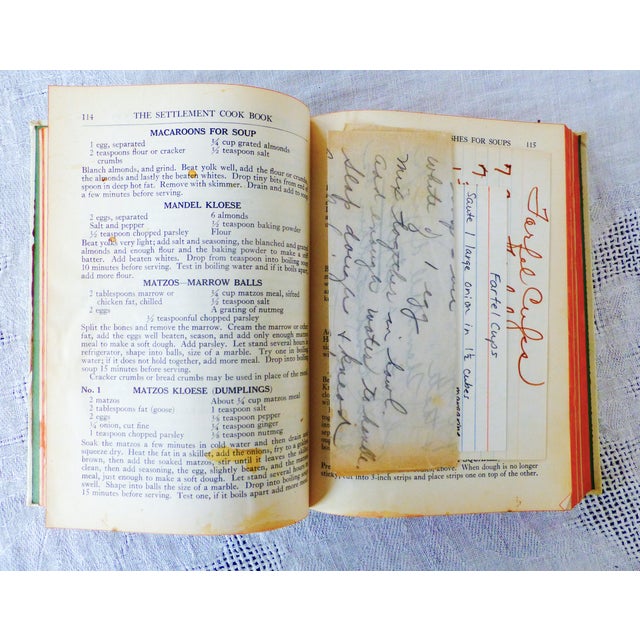 114 THE SETTLEMENT COOK BOOK
MACAROONS FOR SOUP
1 egg, separated ¼ cup grated almonds
2 teaspoons flour or cracker ½ teaspoon salt
crumbs
Blanch almonds, and grind. Beat yolk well, add the flour or crumbs,
the almonds and lastly the beaten whites. Drop tiny bits from end of a
spoon in deep hot fat. Remove with skimmer. Drain and add to soup
a few minutes before serving.
MANDEL KLOESE
2 eggs, separated 6 almonds
Salt and pepper ½ teaspoon baking powder
½ teaspoon chopped parsley Flour
Beat yolks very light; add salt and seasoning, the blanched and grated
almonds and enough flour and the baking powder to make a soft
batter. Add beaten whites. Drop from teaspoon into boiling soup
10 minutes before serving. Test in boiling water and if it boils apart
add more flour.
MATZOS-MARROW BALLS
2 tablespoons marrow or ¾ cup matzos meal, sifted
chicken fat, chilled ½ teaspoon salt
2 eggs A grating of nutmeg
½ teaspoonful chopped parsley
Split the bones and remove the marrow. Cream the marrow or other
fat, add the eggs well beaten, season, and add only enough matzos
meal to make a soft dough. Add parsley. Let stand several hours in
refrigerator, shape into balls, size of a marble. Try one in boiling
water; if it does not hold together, add more meal. Drop into boiling
soup 15 minutes before serving.
Cracker crumbs or bread crumbs may be used in place of the meal.
No. 1 MATZOS KLOESE (DUMPLINGS)
2 matzos About ¼ cup matzos meal
2 tablespoons fat (goose) 1 teaspoon salt
2 eggs ⅛ teaspoon pepper
¼ onion, cut fine ¼ teaspoon ginger
1 teaspoon chopped parsley ⅛ teaspoon nutmeg
Soak the matzos a few minutes in cold water and then drain and
squeeze dry. Heat the fat in a skillet, add the onions, fry to a golden
brown, add the soaked matzos, stir until it leaves the skillet
clean, then add seasoning, the egg, slightly beaten, and the matzos
meal, just enough to make a soft dough. Let stand several hours to
swell. Shape into balls the size of a marble. Drop into boiling soup
15 minutes before serving. Test one, if it boils apart add more meal.
SHES FOR SOUPS 115
white of 1 egg
Mix together in bowl
and enough water to
slap dough & knead
Farfel Cups
Farfel Cups
Saute 1 large onion in 1½ cubes
margarine
above. When dough is no longer
sticky, cut into 3-inch strips and place strips one on top of the other.